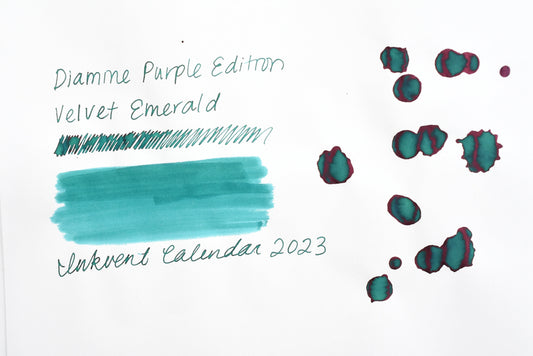 Diamine Purple Edition
Velvet Emerald
Inkvent Calendar 2023